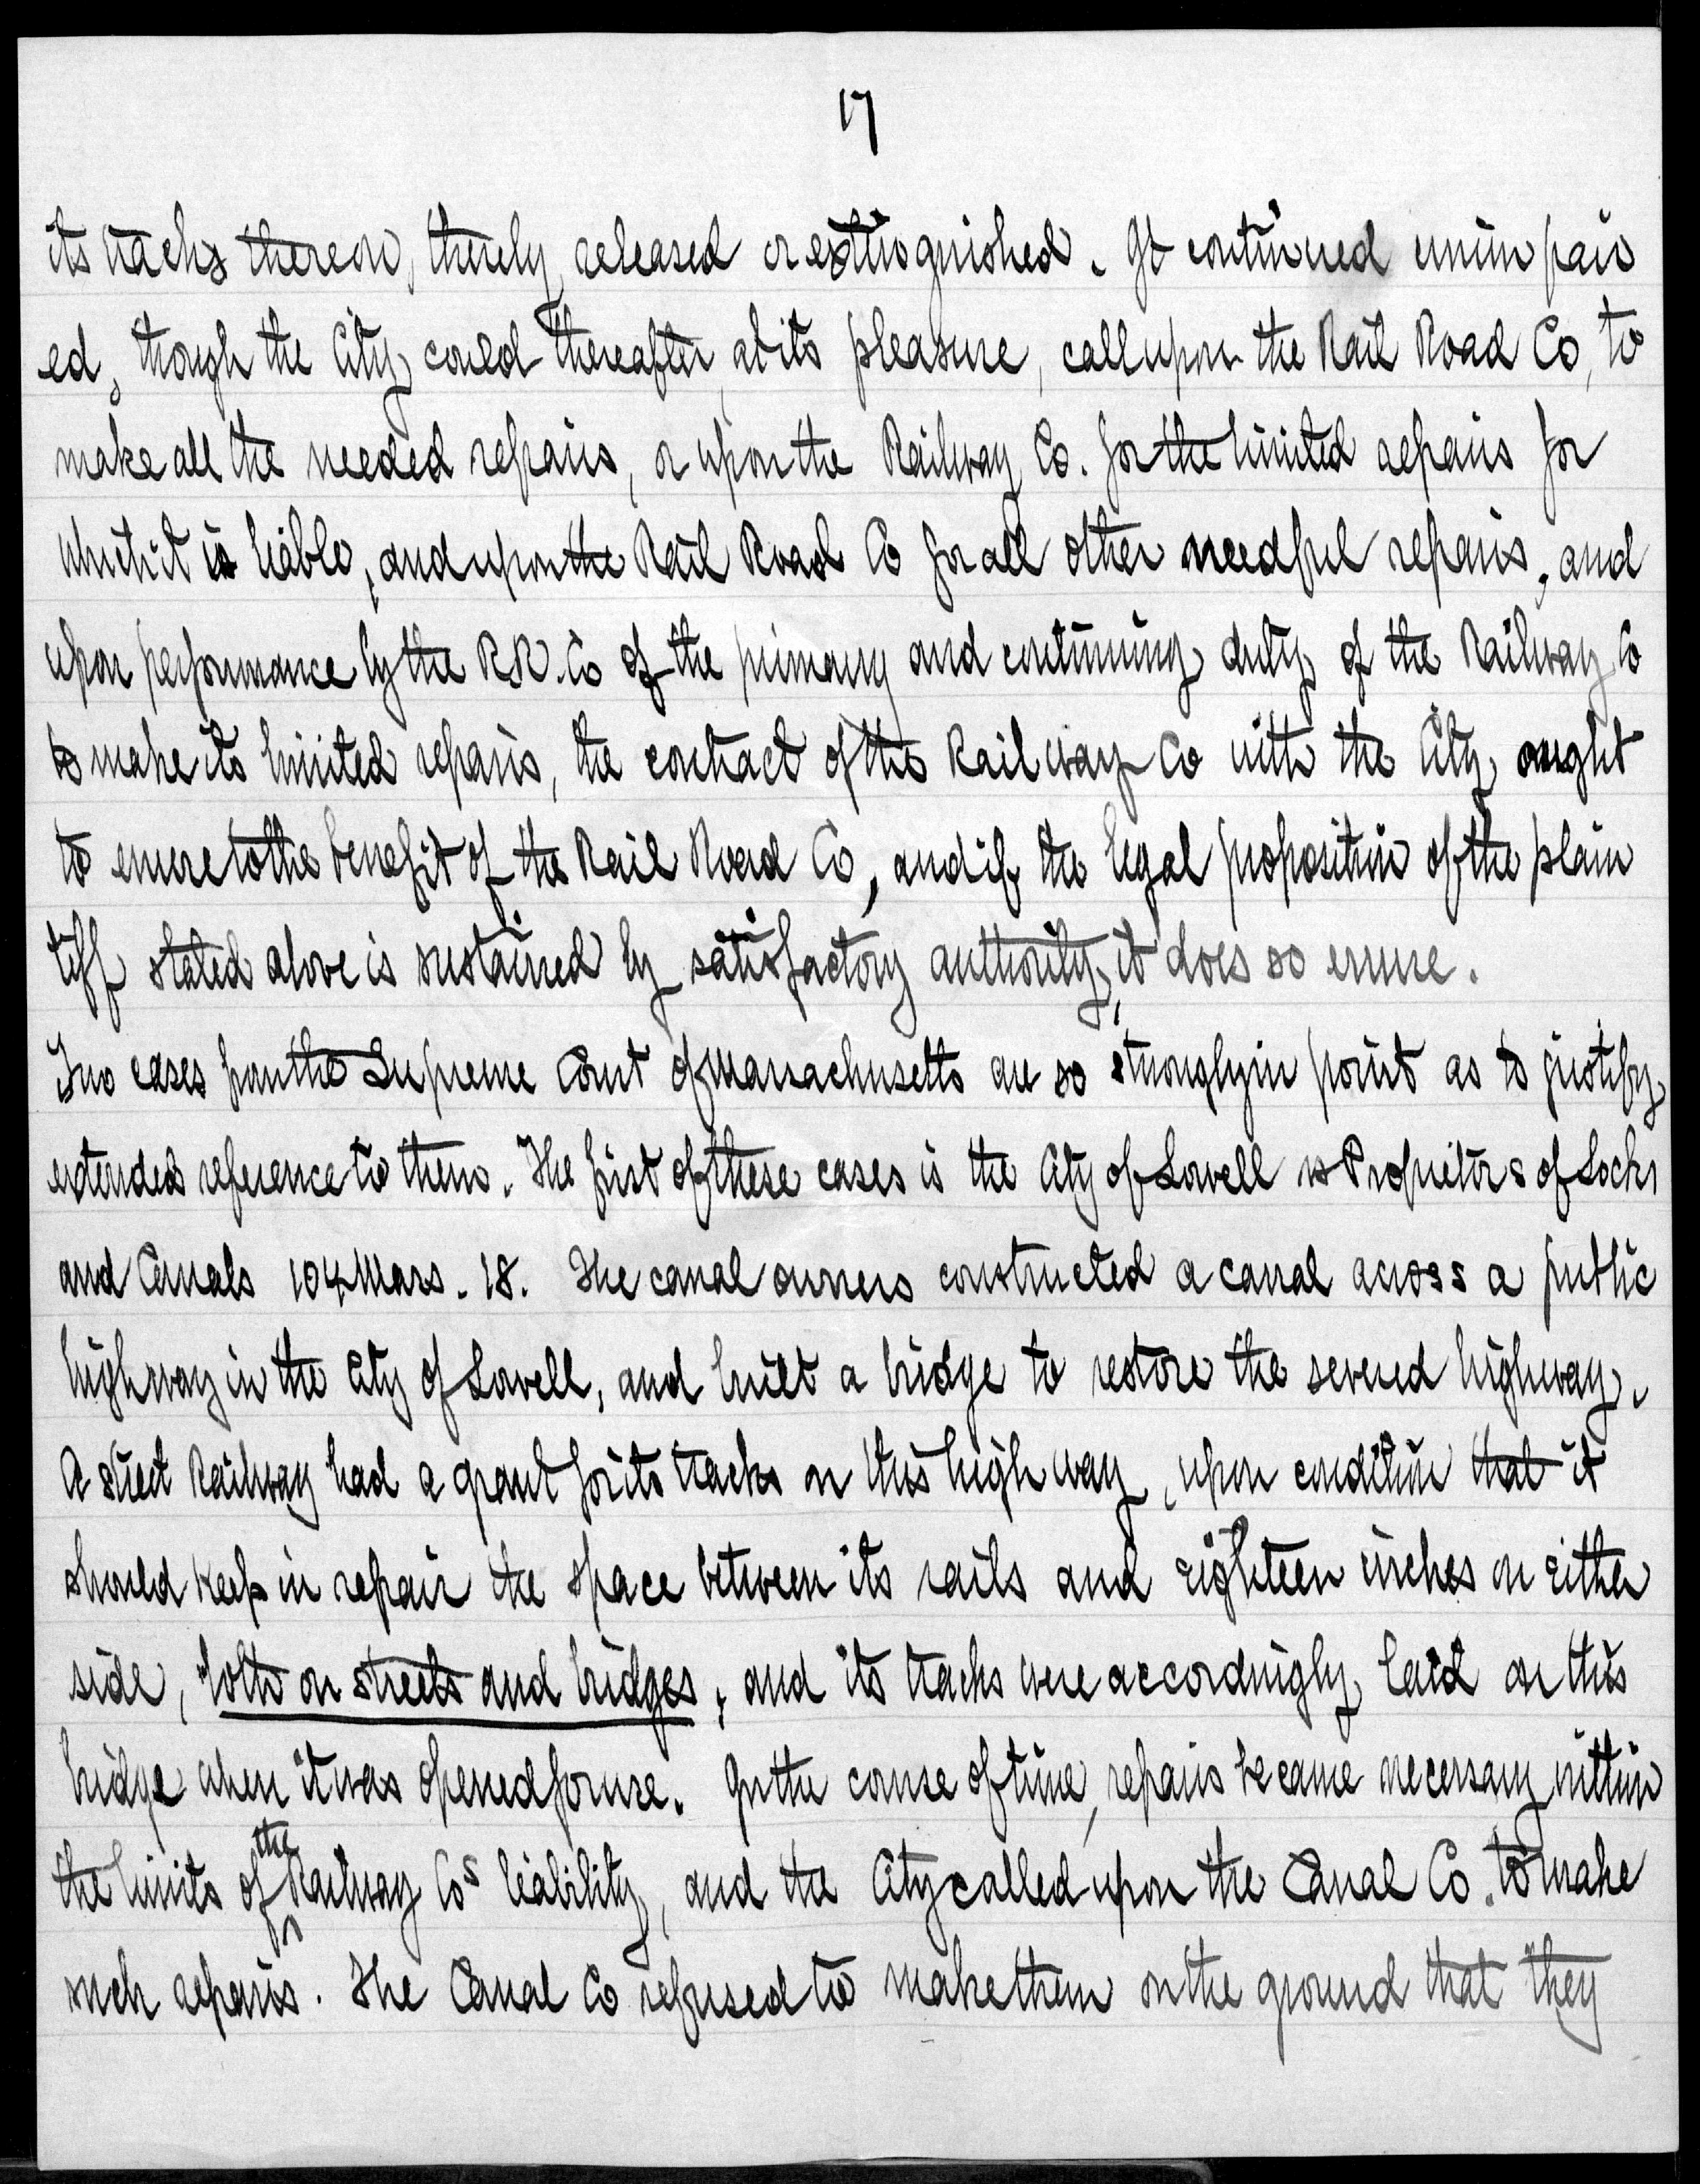 17
its tracks thereon, thereby released or extinguished. It continued unimpair
ed, though the City could thereafter, at its pleasure, call upon the Rail Road Co, to
make all the needed repairs, or upon the Railway Co. for the limited repairs for
which it is liable, and upon the Rail Road Co for all other needful repairs, and
upon performance by the R.R. Co of the primary and continuing duty of the Railway Co
to make its limited repairs, the contract of the Railway Co with the City ought
to enure to the benefit of the Rail Road Co, and if the legal proposition of the plain
tiff stated above is sustained by satisfactory authority, it does so enure.
Two cases from the Supreme Court of Massachusetts are so strongly in point as to justify
extended reference to them. The first of these cases is the City of Lowell vs Proprietors of Locks
and Canals 104 Mass. 18. The canal owners constructed a canal across a public
highway in the City of Lowell, and built a bridge to restore the severed highway.
A street Railway had a grant for its tracks on this highway, upon condition that it
should keep in repair the space between its rails and eighteen inches on either
side, "both on streets and bridges, and its tracks were accordingly laid on this
bridge when it was opened for use. In the course of time, repairs became necessary within
the limits of the Railway Cos liability, and the City called upon the Canal Co. to make
such repairs. The Canal Co refused to make them on the ground that they